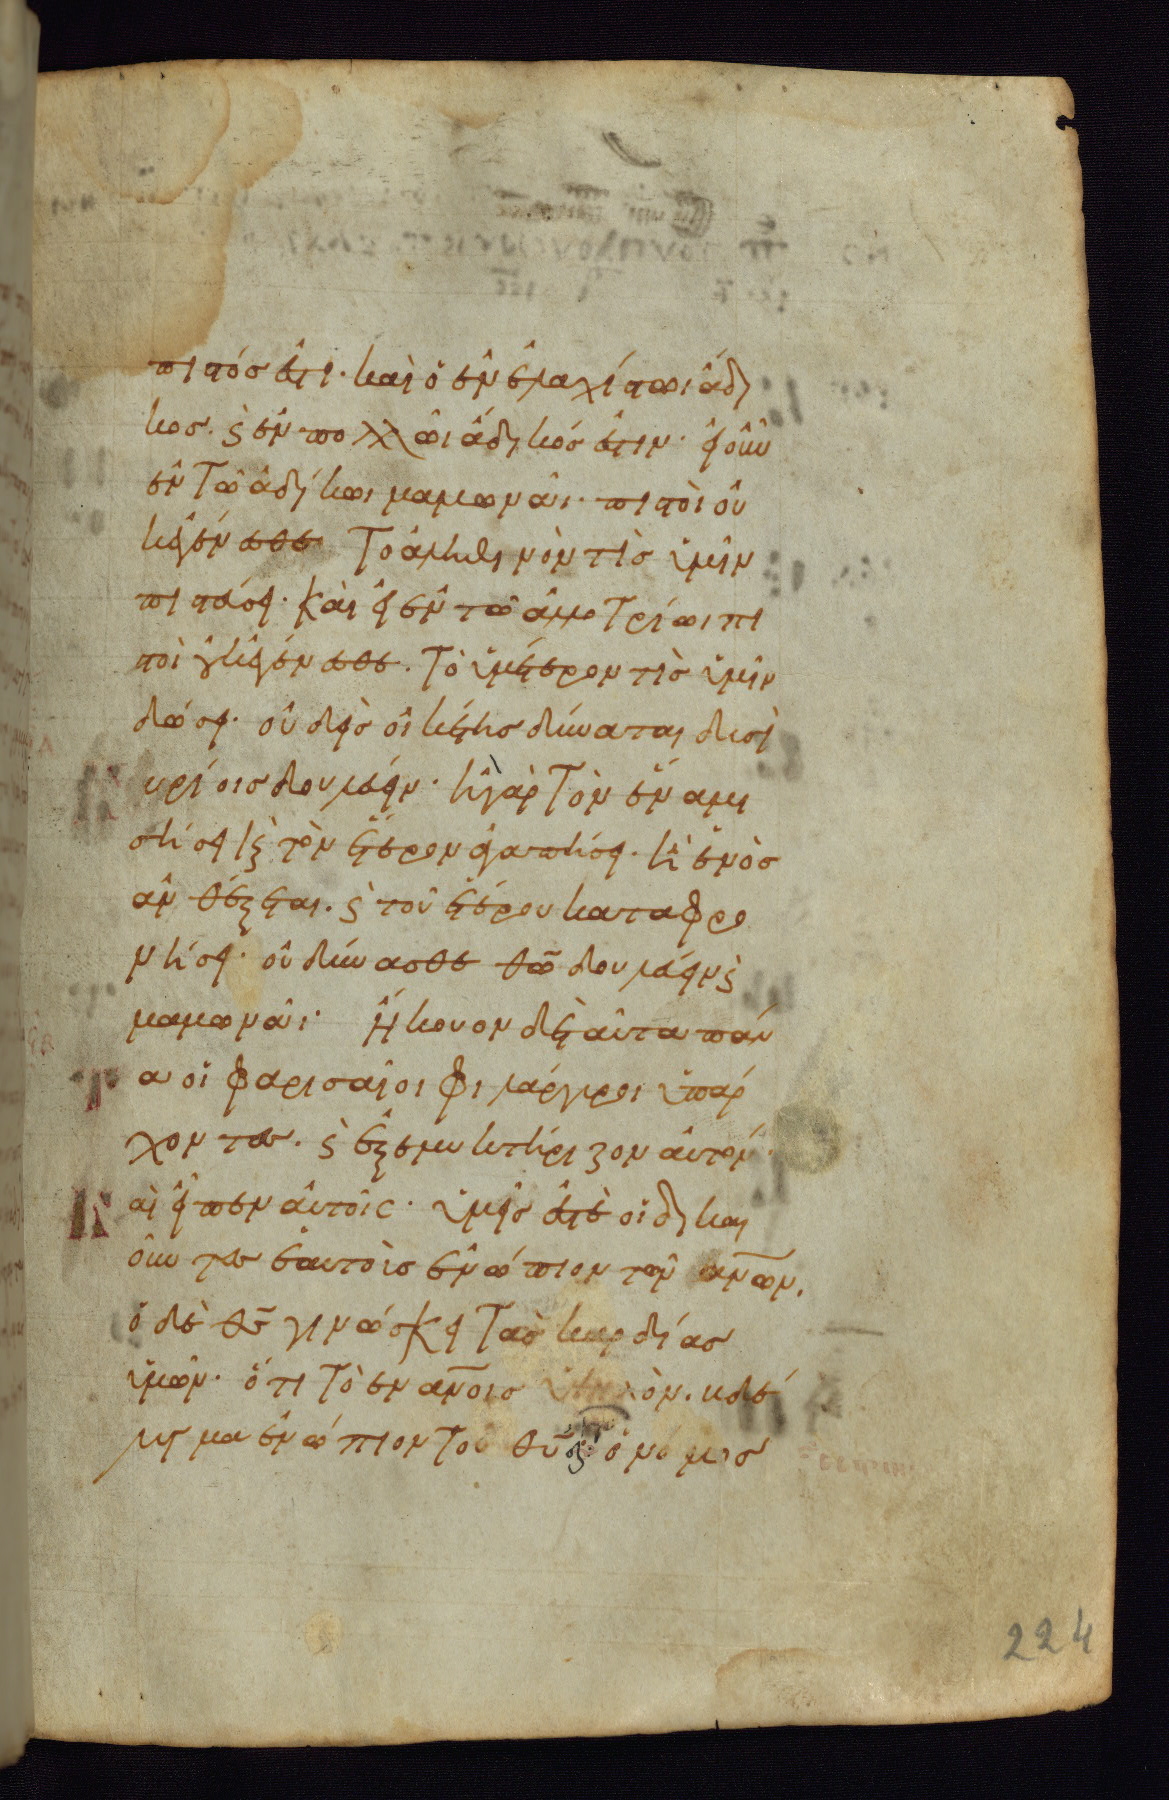 πιστός ἐστι· καὶ ὁ ἐν ἐλαχίστωι ἄδι
κος. ϗ ἐν πολλῶι ἄδικός ἐστιν· εἰ οὖν
ἐν τῶ ἀδίκωι μαμωνᾶι· πιστοὶ οὐ
κ ἐγένεσθε τὸ ἀληθινὸν τίς ὑμῖν
πιστεύσει· Καὶ εἰ ἐν τῶ ἀλλοτρίωι πι
στοὶ οὐκ ἐγένεσθε. Τὸ ὑμέτερον τίς ὑμῖν
δώσει· οὐδεὶς οἰκέτης δύναται δυσὶ
κυρίοις δουλεύειν· ἢ γὰρ τὸν ἕνα μι
σήσει ϗ τὸν ἕτερον ἀγαπήσει· ἢ ἑνὸς
ἀνθέξεται. ϗ τοῦ ἑτέρου καταφρο
νήσει· οὐ δύνασθε θῶ δουλεύειν ϗ
μαμωνᾶι· Ἤκουον δὲ ταῦτα πάν
α οἱ φαρισαῖοι φιλάργυροι ὑπάρ
χοντες. ϗ ἐξεμυκτήριζον αὐτόν·
αὶ εἶπεν αὐτοῖς· ὑμεῖς ἐστὲ οἱ δικαι
οῦντες ἑαυτοὺς ἐνώπιον τῶν ανων.
ὁ δὲ θς γινώσκει τὰς καρδίας
ὑμῶν. ὅτι τὸ ἐν ανοις ὑψηλὸν. βδέ
λυγμα ἐνώπιον τοῦ θυ ὁ νόμος
224